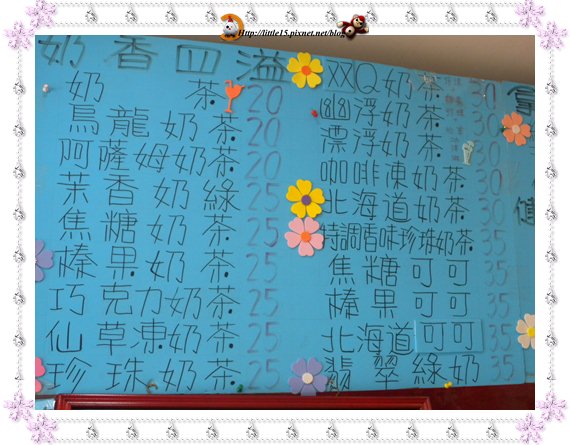 Http://little15.pixnet.net/blog
奶香四溢
奶茶 20
烏龍奶茶 20
阿薩姆奶茶 20
茉香奶綠 25
焦糖奶茶 25
榛果奶茶 25
巧克力奶茶 25
仙草凍奶茶 25
珍珠奶茶 25
双Q奶茶 30
幽浮奶茶 30
漂浮奶茶 30
咖啡凍奶茶 30
北海道奶茶 30
特調香味珍珠奶茶 35
焦糖可可 35
榛果可可 35
北海道可可 35
翡翠綠奶 35